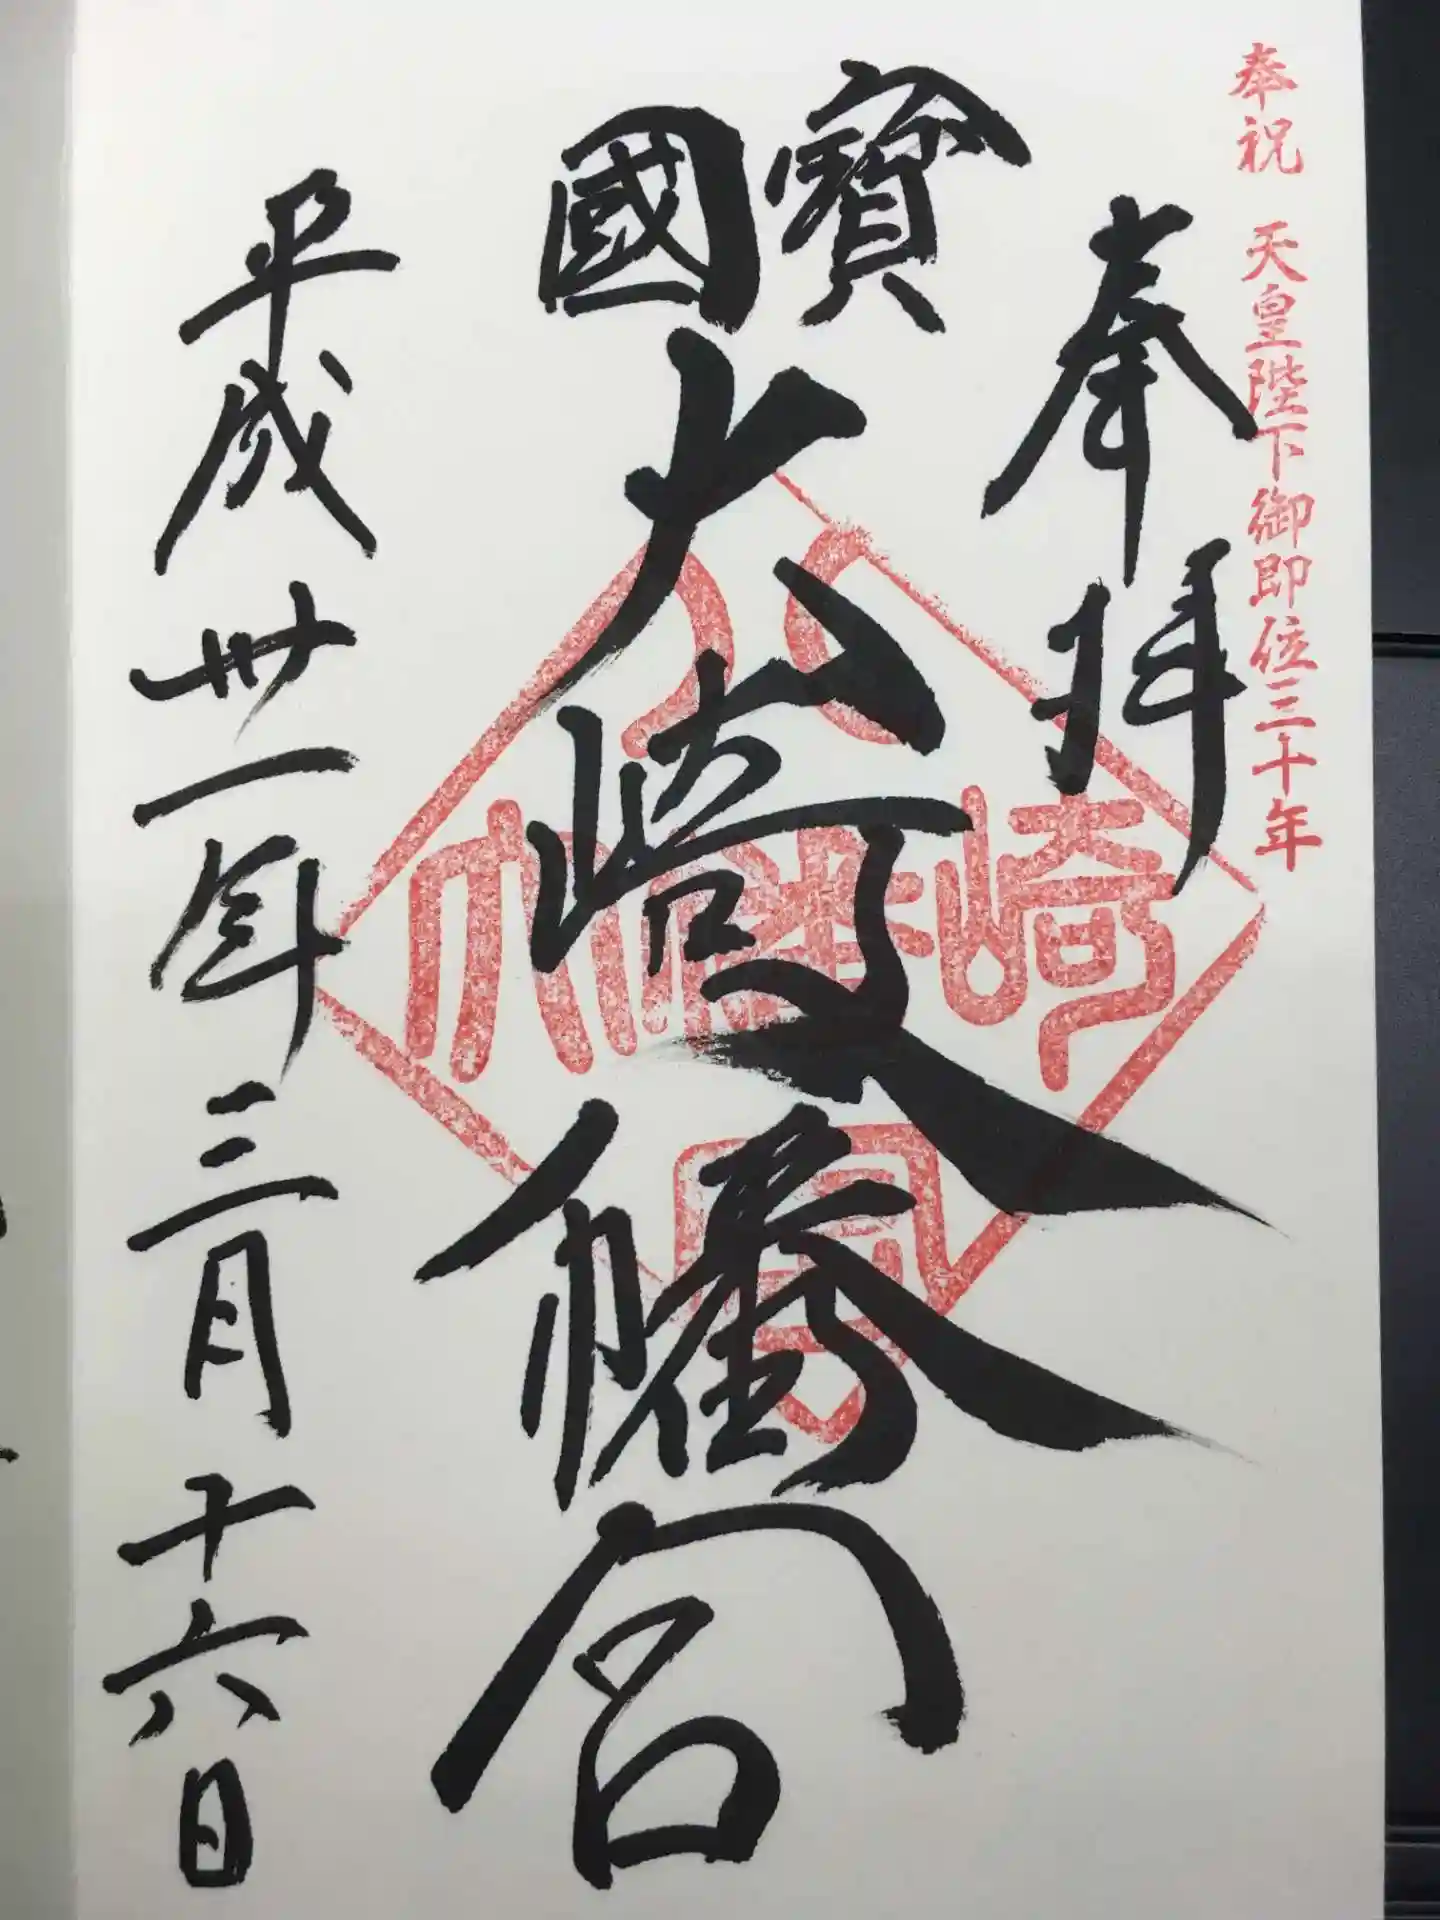 奉祝 天皇陛下御即位三十年
奉拝
國寳
大崎八幡宮
平成丗一年三月十六日
大崎八幡宮